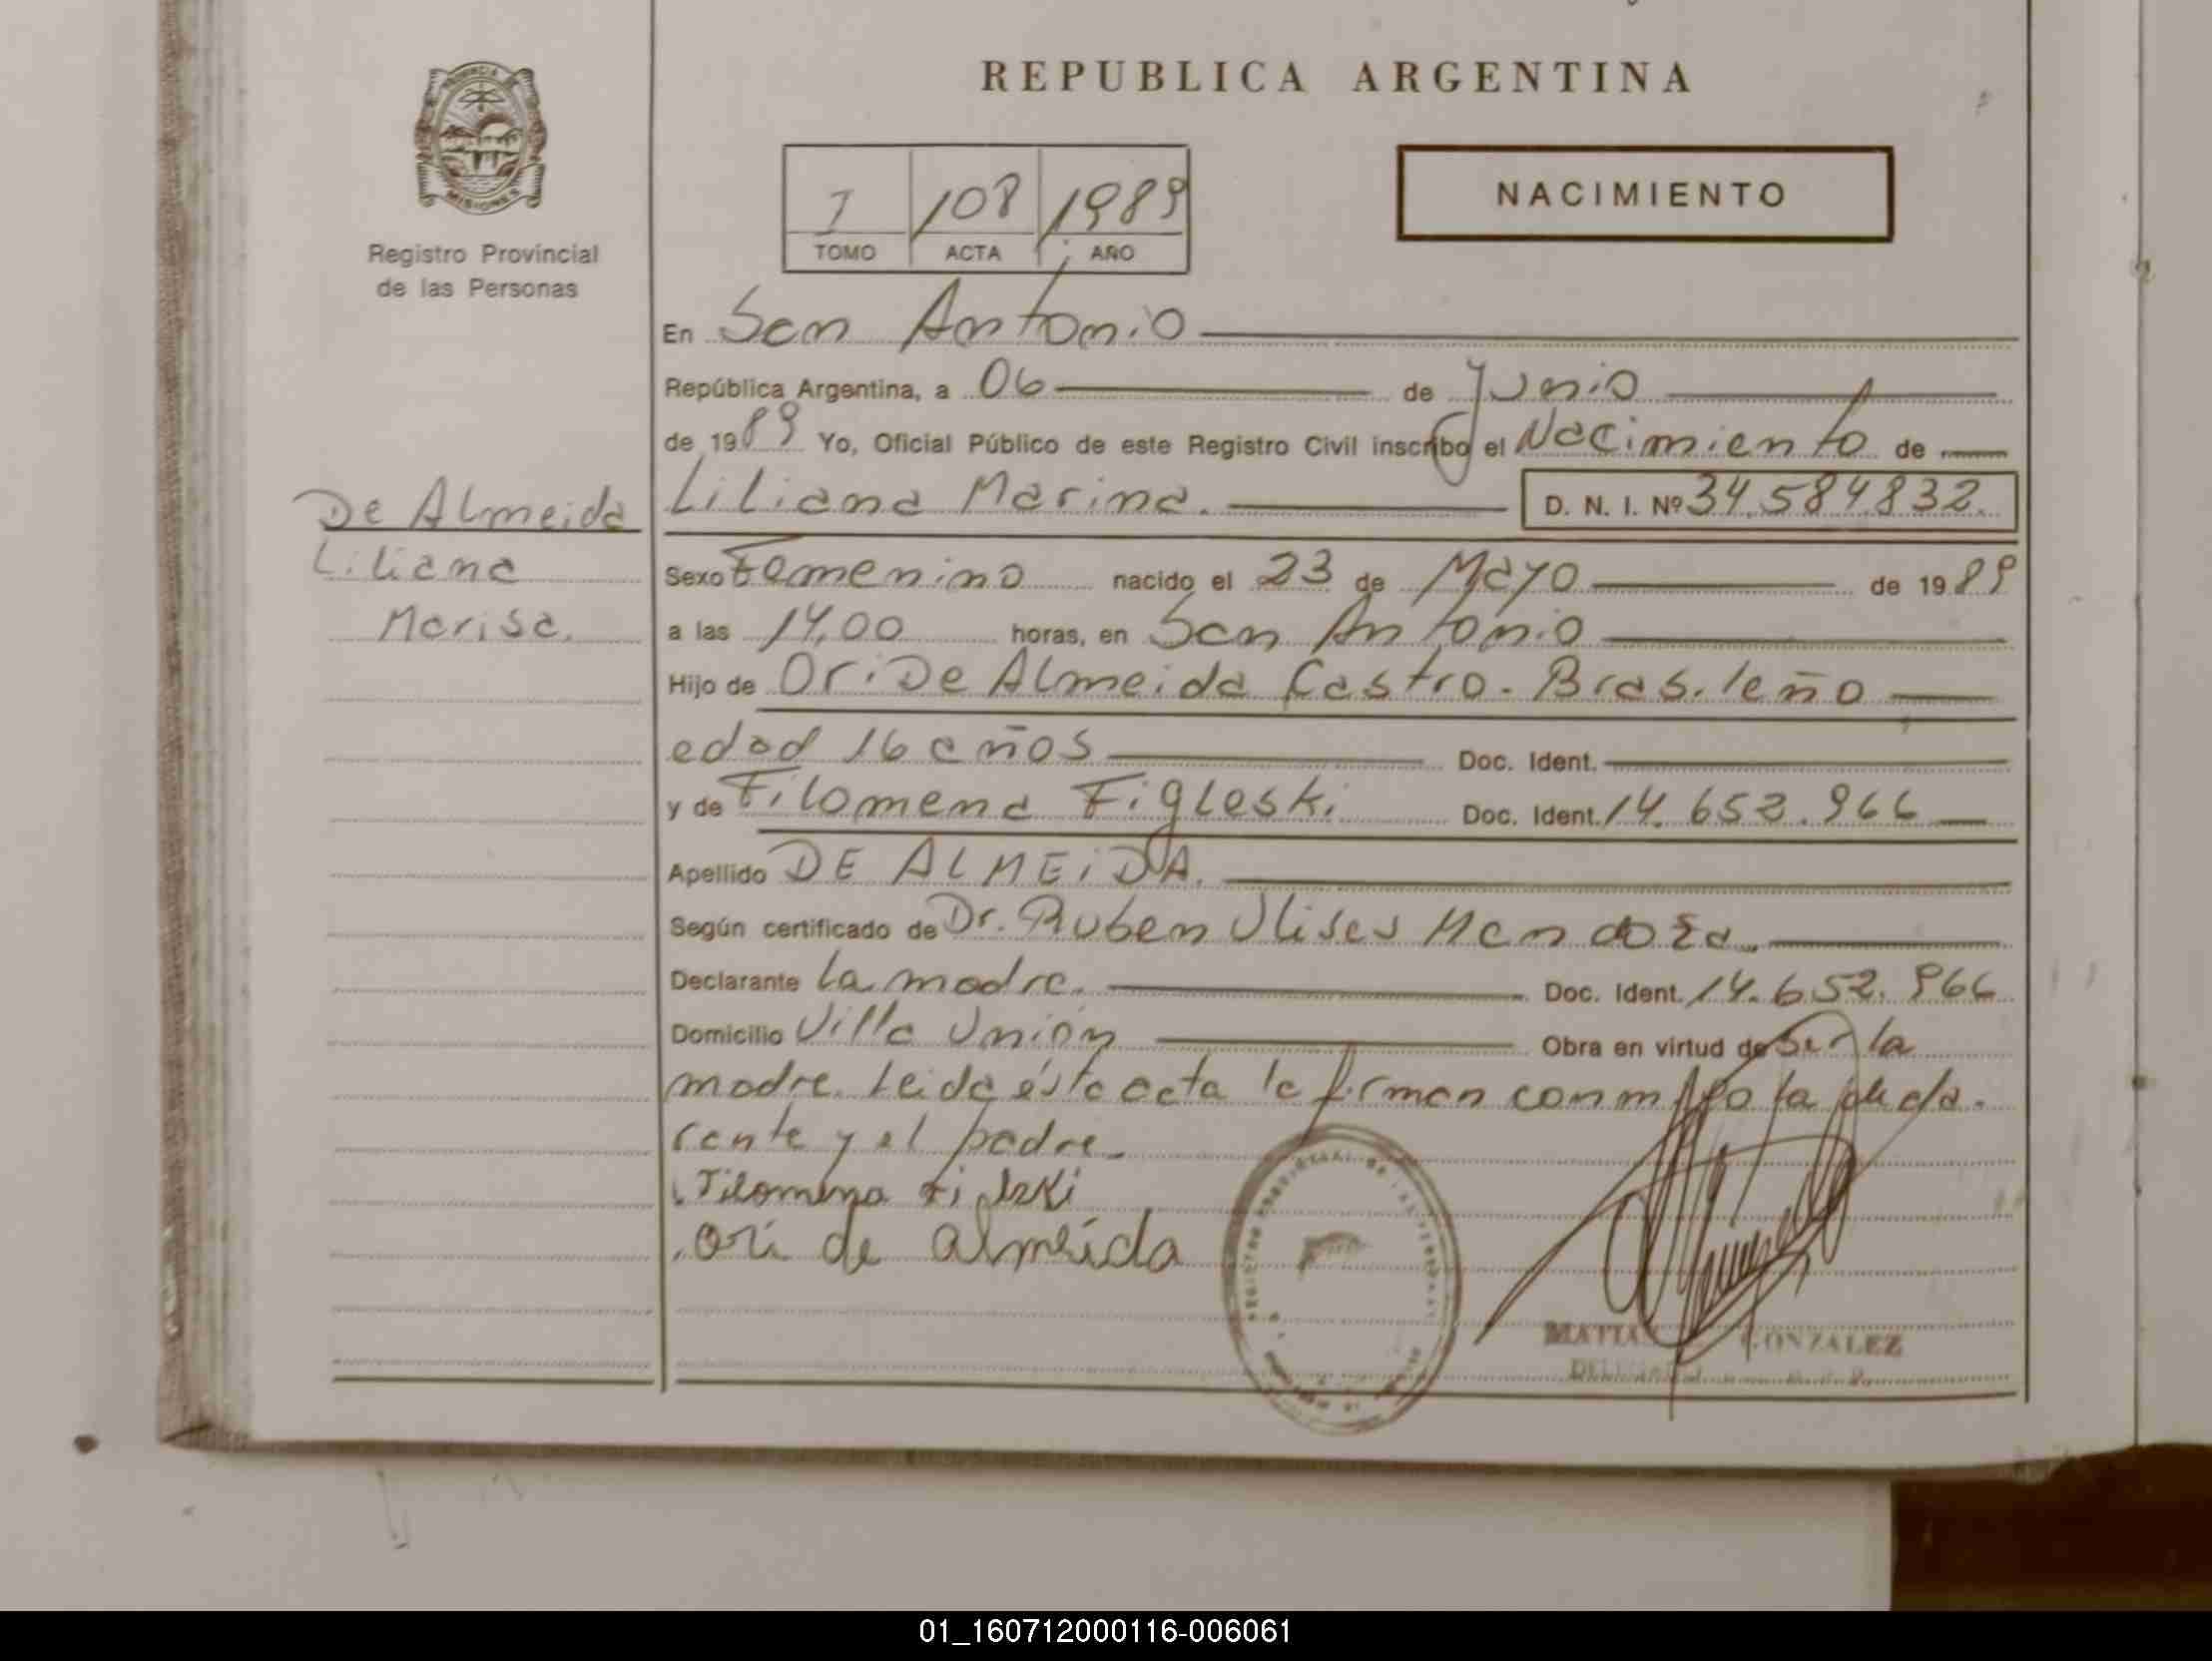 REPUBLICA ARGENTINA
PROVINCIA
MISIONES
Registro Provincial
de las Personas
I 108 1989
TOMO ACTA AÑO
NACIMIENTO
En San Antonio
República Argentina, a 06 de Junio
de 1989 Yo, Oficial Público de este Registro Civil inscribo el Nacimiento de
De Almeida
Liliana
Marisa.
Liliana Marina. D. N. I. Nº 34.584.832.
Sexo Femenino nacido el 23 de Mayo de 1989
a las 14,00 horas, en San Antonio
Hijo de Ori De Almeida Castro. Brasileño
edad 16 años Doc. Ident.
y de Filomena Figleski Doc. Ident. 14.652.966
Apellido DE ALMEIDA.
Según certificado de Dr. Ruben Ulises Mendoza
Declarante la madre. Doc. Ident. 14.652.966
Domicilio Villa Unión Obra en virtud de Ser la
madre. Leida ésta acta la firman conmigo la decla-
rante y el padre.
Filomena
ori de almeida
MATIAS GONZALEZ
01_160712000116-006061